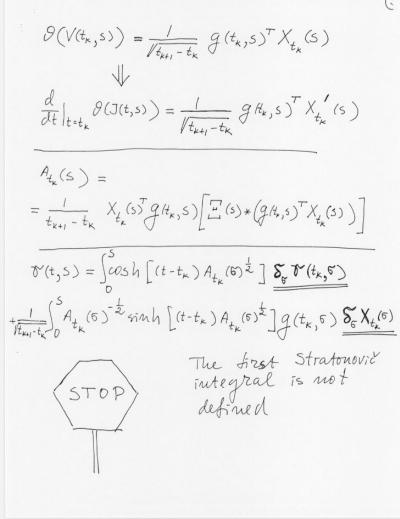 ϑ(V(t_k,s)) = 1/√(t_{k+1}-t_k) g(t_k,s)^T X_{t_k}(s)
⇓
d/dt|_{t=t_k} ϑ(J(t,s)) = 1/√(t_{k+1}-t_k) g(t_k,s)^T X_{t_k}'(s)
A_{t_k}(s) =
= 1/(t_{k+1}-t_k) X_{t_k}(s)^T g(t_k,s) [Ξ(s) * (g(t_k,s)^T X_{t_k}(s))]
r(t,s) = ∫_0^s cosh [(t-t_k) A_{t_k}(σ)^{1/2}] δ_σ r(t_k,σ)
+ 1/√(t_{k+1}-t_k) ∫_0^s A_{t_k}(σ)^{-1/2} sinh [(t-t_k) A_{t_k}(σ)^{1/2}] g(t_k,σ) δ_σ X_{t_k}(σ)
The first Stratonovič
integral is not
defined
STOP